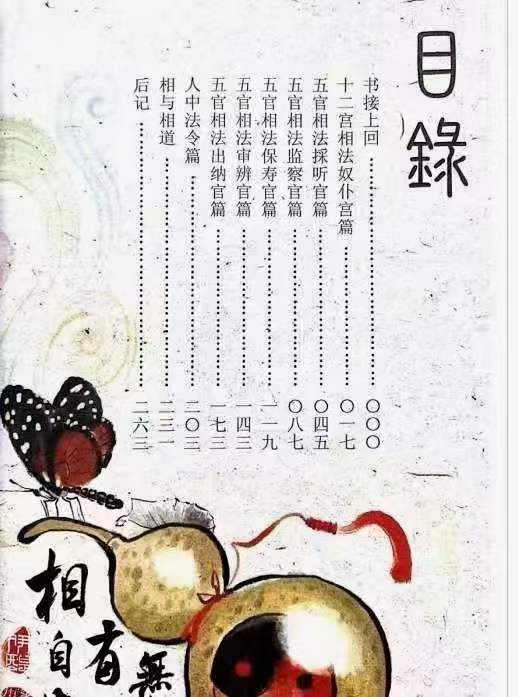 目錄
书接上回 〇〇〇
十二宫相法奴仆宫篇 〇一七
五官相法採听官篇 〇四五
五官相法监察官篇 〇八七
五官相法保寿官篇 一一九
五官相法审辨官篇 一四三
五官相法出纳官篇 一七三
人中法令篇 二〇三
相与相道 二三一
后记 二六三
無
有
相自